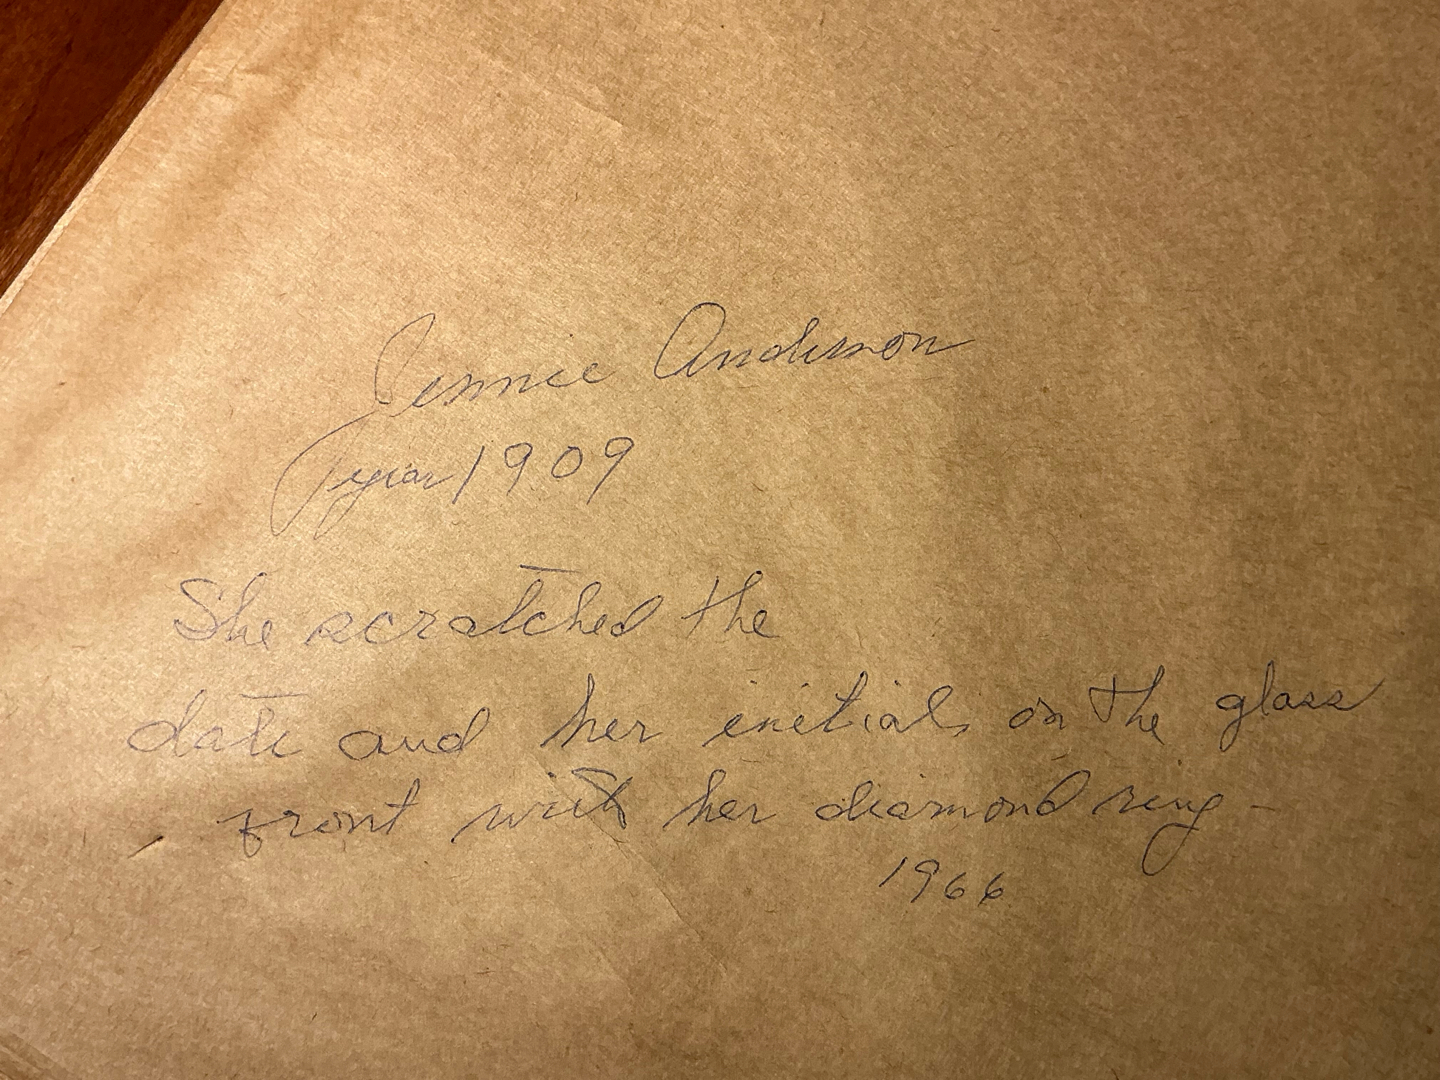 Jennie Anderson
year 1909
She scratched the
date and her initials on the glass
front with her diamond ring -
1966